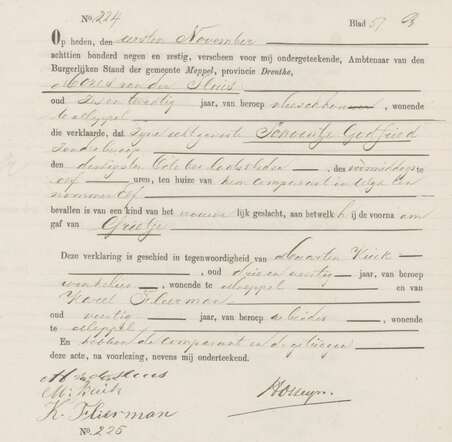 No. 224 Blad 57
Op heden, den eersten November
achttien honderd negen en zestig, verscheen voor mij ondergeteekende, Ambtenaar van den
Burgerlijken Stand der gemeente Meppel, provincie Drenthe,
Mozes van der Sluis
oud zes en veertig jaar, van beroep vleeschhouwer, wonende
te Meppel
die verklaarde, dat zijne echtgenoote Godfried
zonder beroep
den dertigsten October laatstleden, des voormiddags te
elf uren, ten huize van hem comparant in wijk
nommer elf
bevallen is van een kind van het vrouwelijk geslacht, aan hetwelk hij de voornaam
gaf van Grietje
Deze verklaring is geschied in tegenwoordigheid van Maarten Kuik
, oud drie en veertig jaar, van beroep
winkelier, wonende te Meppel en van
Karel Flierman
oud veertig jaar, van beroep arbeider, wonende
te Meppel
En hebben de comparant en de getuigen
deze acte, na voorlezing, nevens mij onderteekend.
M vd Sluis
M: Kuik
K. Flierman
No. 225